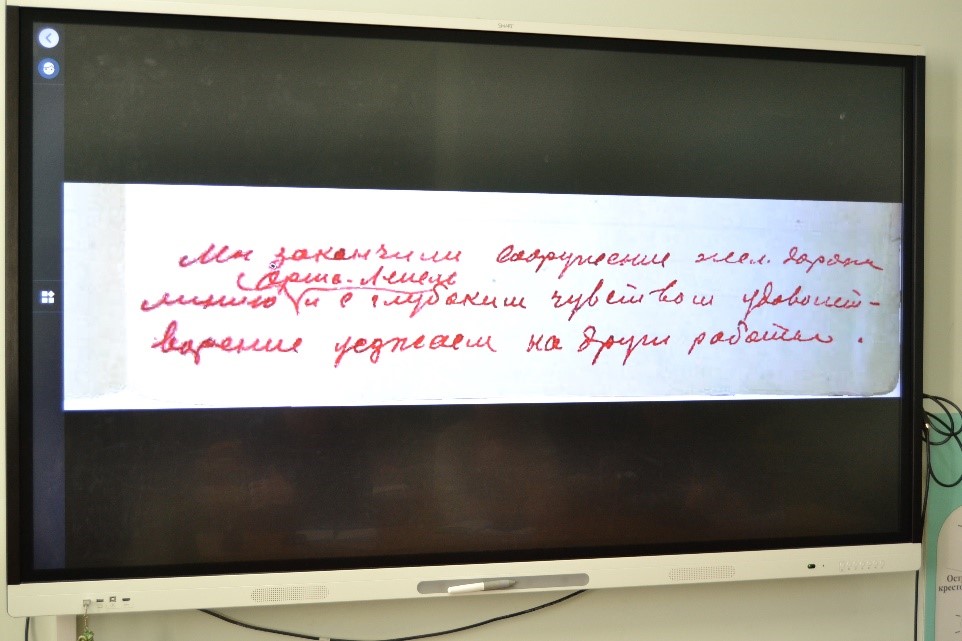 SMART
Мы закончили сооружение жел. дороги
Орша-Лепель
линию и с глубоким чувством удовлет-
ворение уезжаем на други работы.